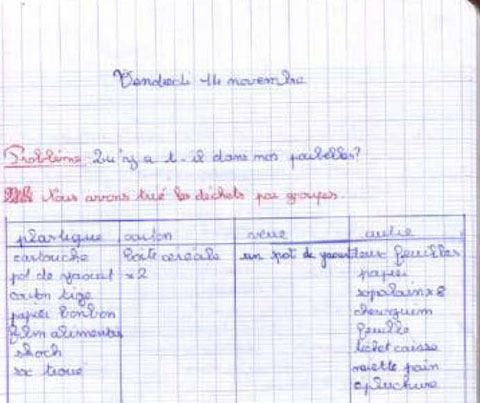 Vendredi 14 novembre
Problème Qu'y a t-il dans nos poubelles?
Nous avons trié les déchets par groupes.
plastique carton verre autre
cartouche boite céréale un pot de yaourt deux feuilles
pot de yaourt x2 papier
coton tige sopalain x8
papier bonbon chewguim
film alimentaire feuille
skoch ticket caisse
sac troué miette pain
épluchure